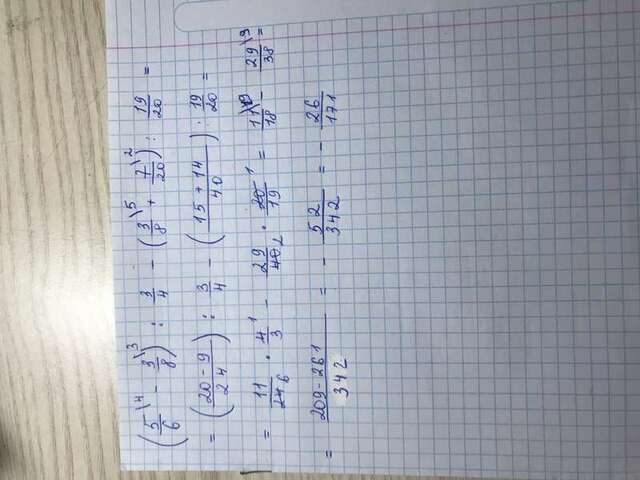 (5/6\4 - 3/8\3) : 3/4 - (3/8\5 + 7/20\2) : 19/20 =
= (20-9/24) : 3/4 - (15+14/40) : 19/20 =
= 11/24 6 · 4 1/3 - 29/40 2 · 20 1/19 = 11\19/18 - 29\9/38 =
= 209-261/342 = - 52/342 = - 26/171